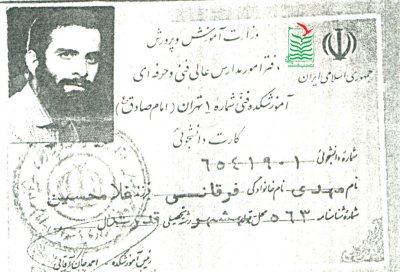 وزارت آموزش و پرورش
دفتر امور مدارس عالی فنی و حرفه ای
جمهوری اسلامی ایران
آموزشکده فنی شماره ۱ تهران (امام صادق ع)
کارت دانشجوئی
شماره دانشجوئی ۶۵۴۱۹۰۱
نام مهدی نام خانوادگی فرقانی فرزند غلامحسین
شماره شناسنامه ۵۶۳ محل صدور
رئیس آموزشکده